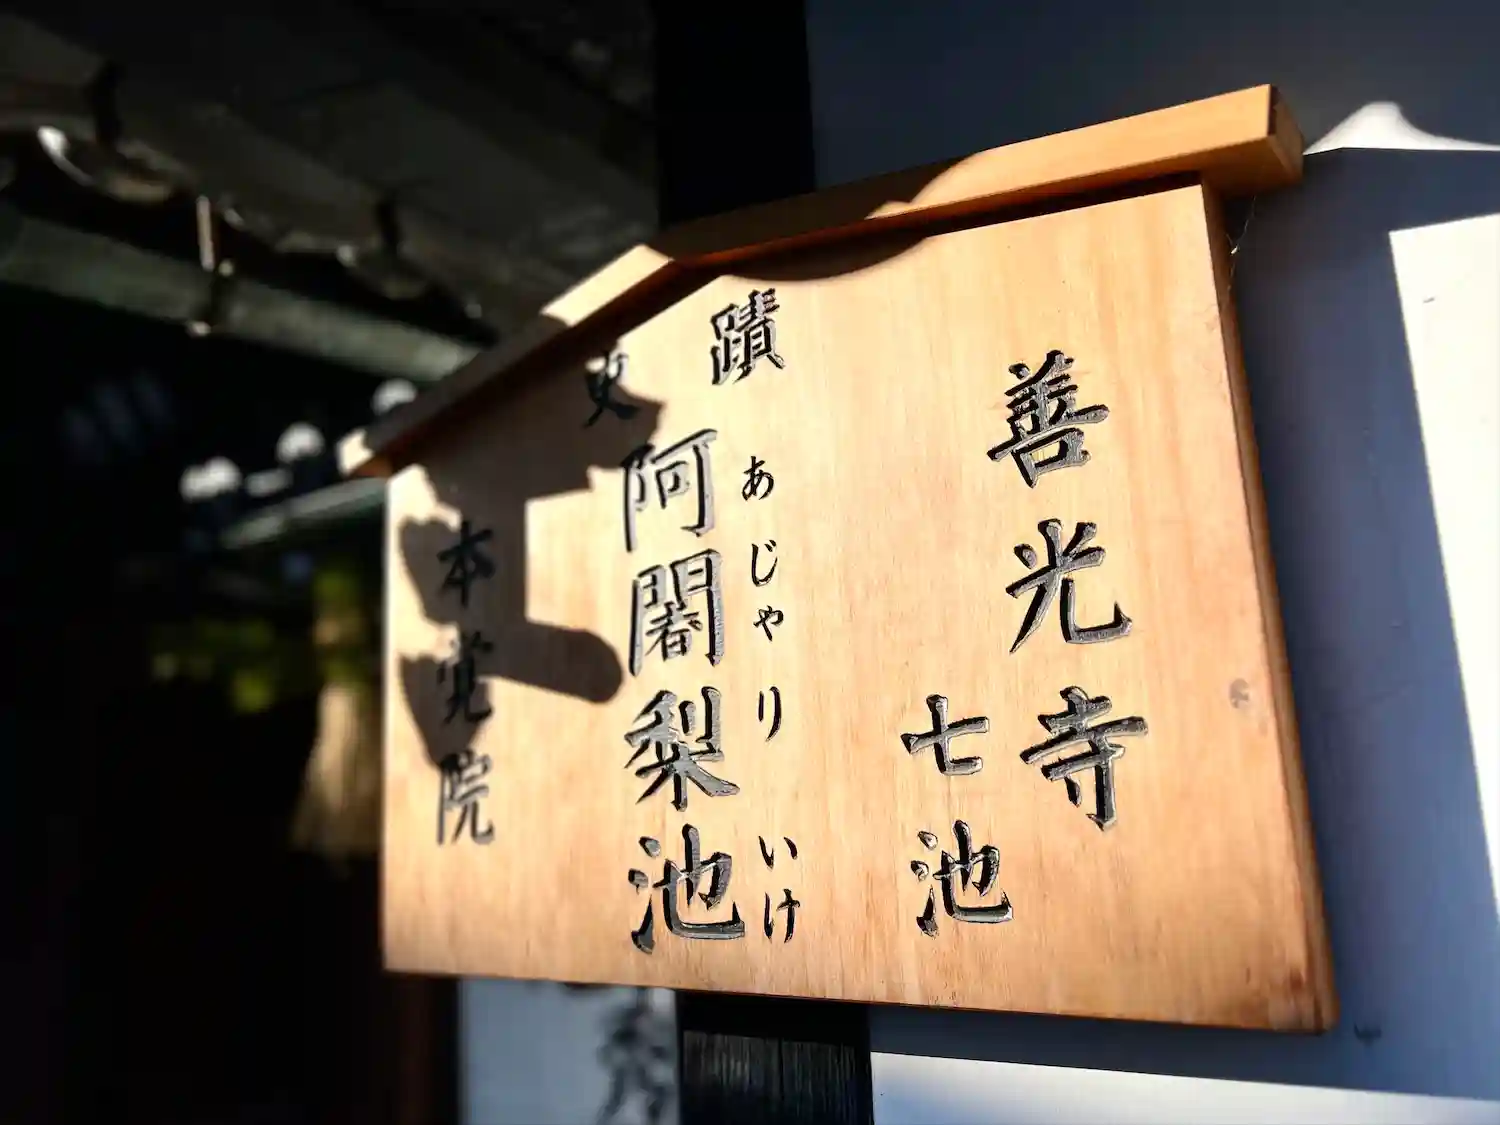 史蹟
善光寺
七池
あじゃり いけ
阿闍梨池
本覚院